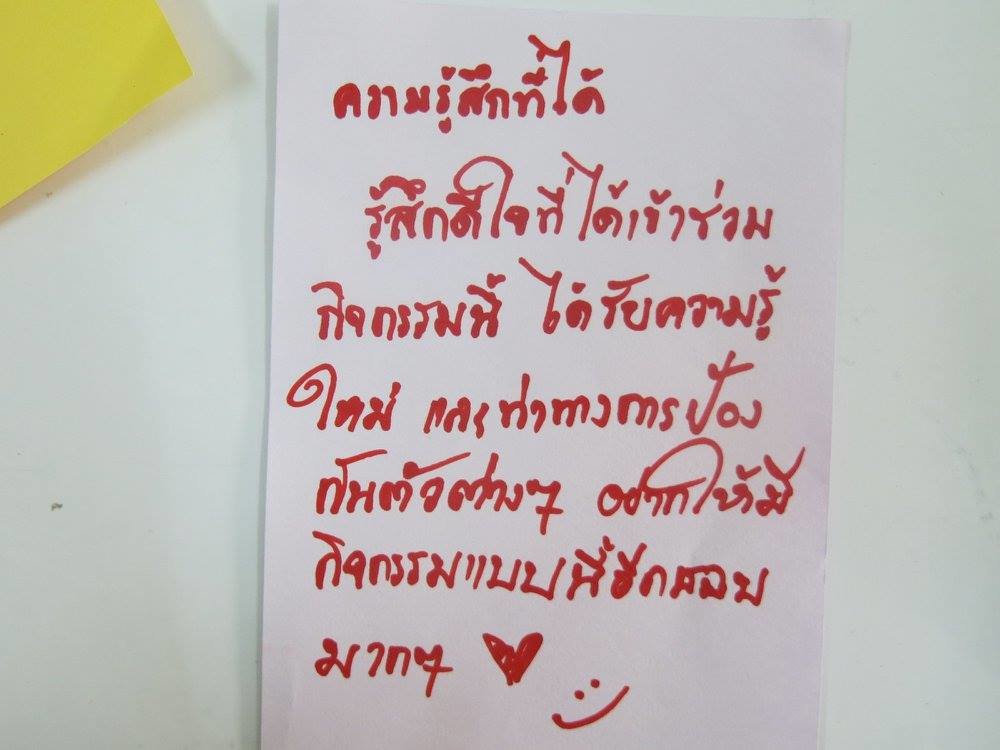 ความรู้สึกที่ได้
รู้สึกดีใจที่ได้เข้าช่วม
กิจกรรมนี้ ได้รับความรู้
ใหม่ และท่าทางการป้อง
กันตัวต่างๆ อยากให้มี
กิจกรรมแบบนี้อีกชอบ
มากๆ